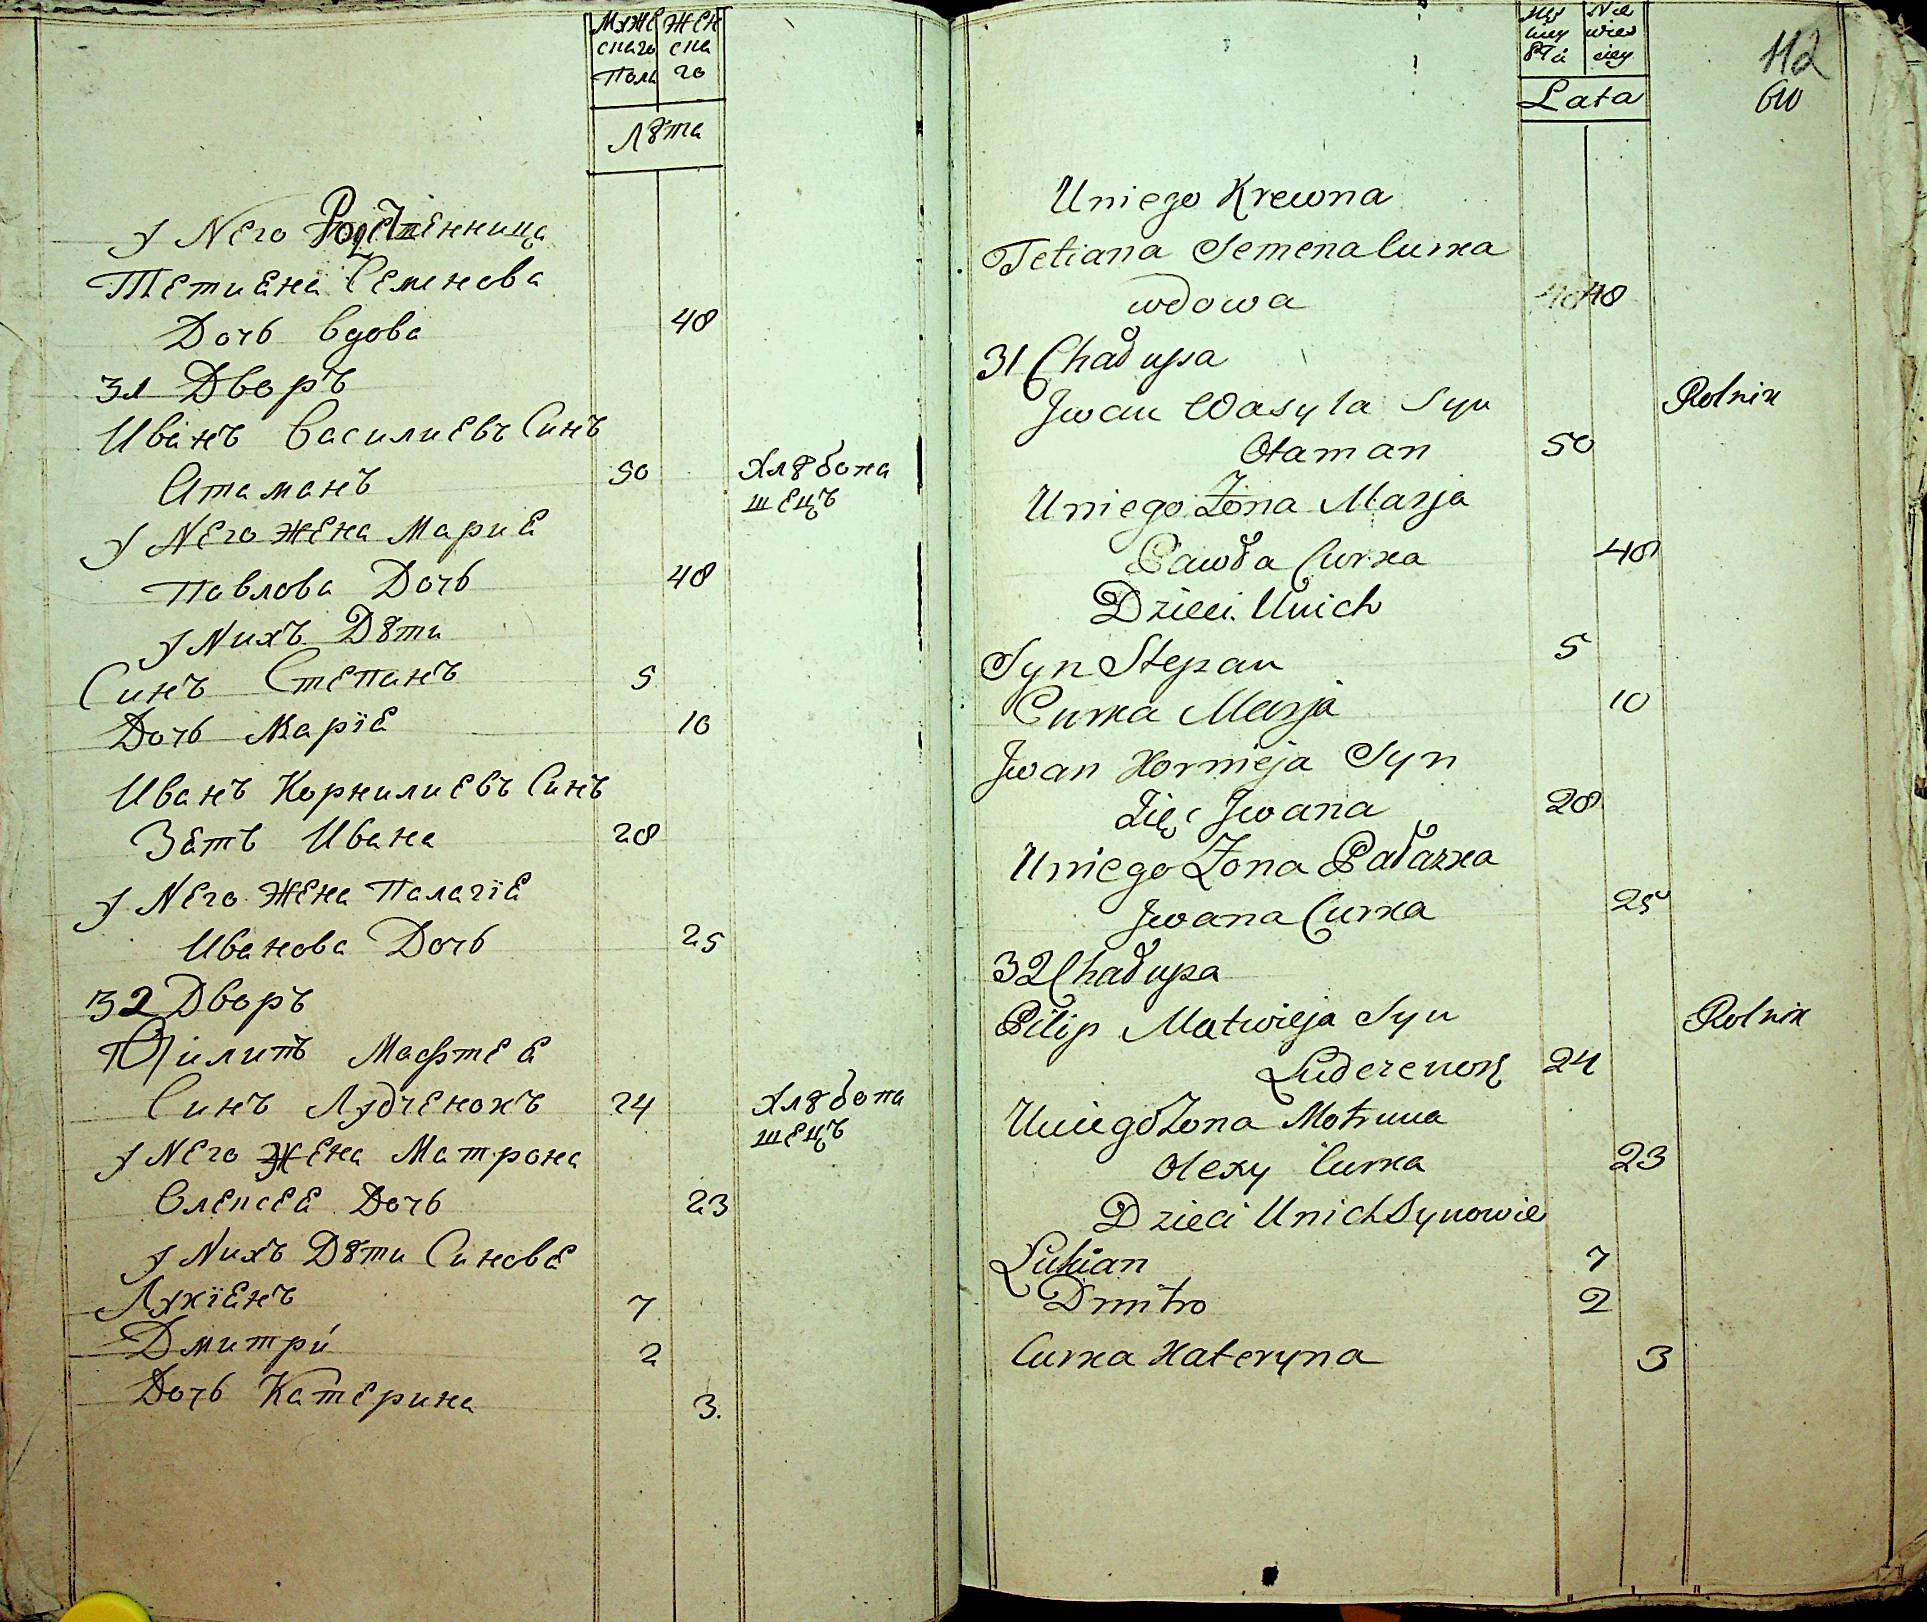 Муже Жен
скаго ска
Пола го
Лѣта
У Него Родственница
Тетиана Семенова
Дочь вдова 48
31 Дворъ
Иванъ Василиевъ Синъ
Атаманъ 50 Хлѣбопа
шецъ
У Него Жена Мариа
Павлова Дочь 48
У Нихъ Дѣти
Синъ Степанъ 5
Дочь Маріа 10
Иванъ Корнилиевъ Синъ
Зать Ивана 28
У Него Жена Палагіа
Иванова Дочь 25
32 Дворъ
Филипъ Мафтеа
Синъ Лудченокъ 24 Хлѣбопа
шецъ
У Него Жена Матрона
Олексеа Дочь 23
У Нихъ Дѣти Синове
Лукіанъ 7
Дмитри 2
Дочь Катерина 3.
112
Lata
60
Uniego Krewna
Tetiana Semena Curka
wdowa 48
31 Chałupa
Jwan Wasyla Syn Rolnik
Otaman 50
Uniego Żona Marja
Pawła Curka 48
Dzieci Unich
Syn Stepan 5
Curka Marja 10
Jwan Kornieja Syn
Zięc Jwana 28
Uniego Żona Pałazka
Jwana Curka 25
32 Chałupa
Pilip Matwieja Syn Rolnik
Ludczenok 24
Uniego Żona Motruna
Olexy Curka 23
Dzieci Unich Synowie
Lukian 7
Dmitro 2
Curka Kateryna 3